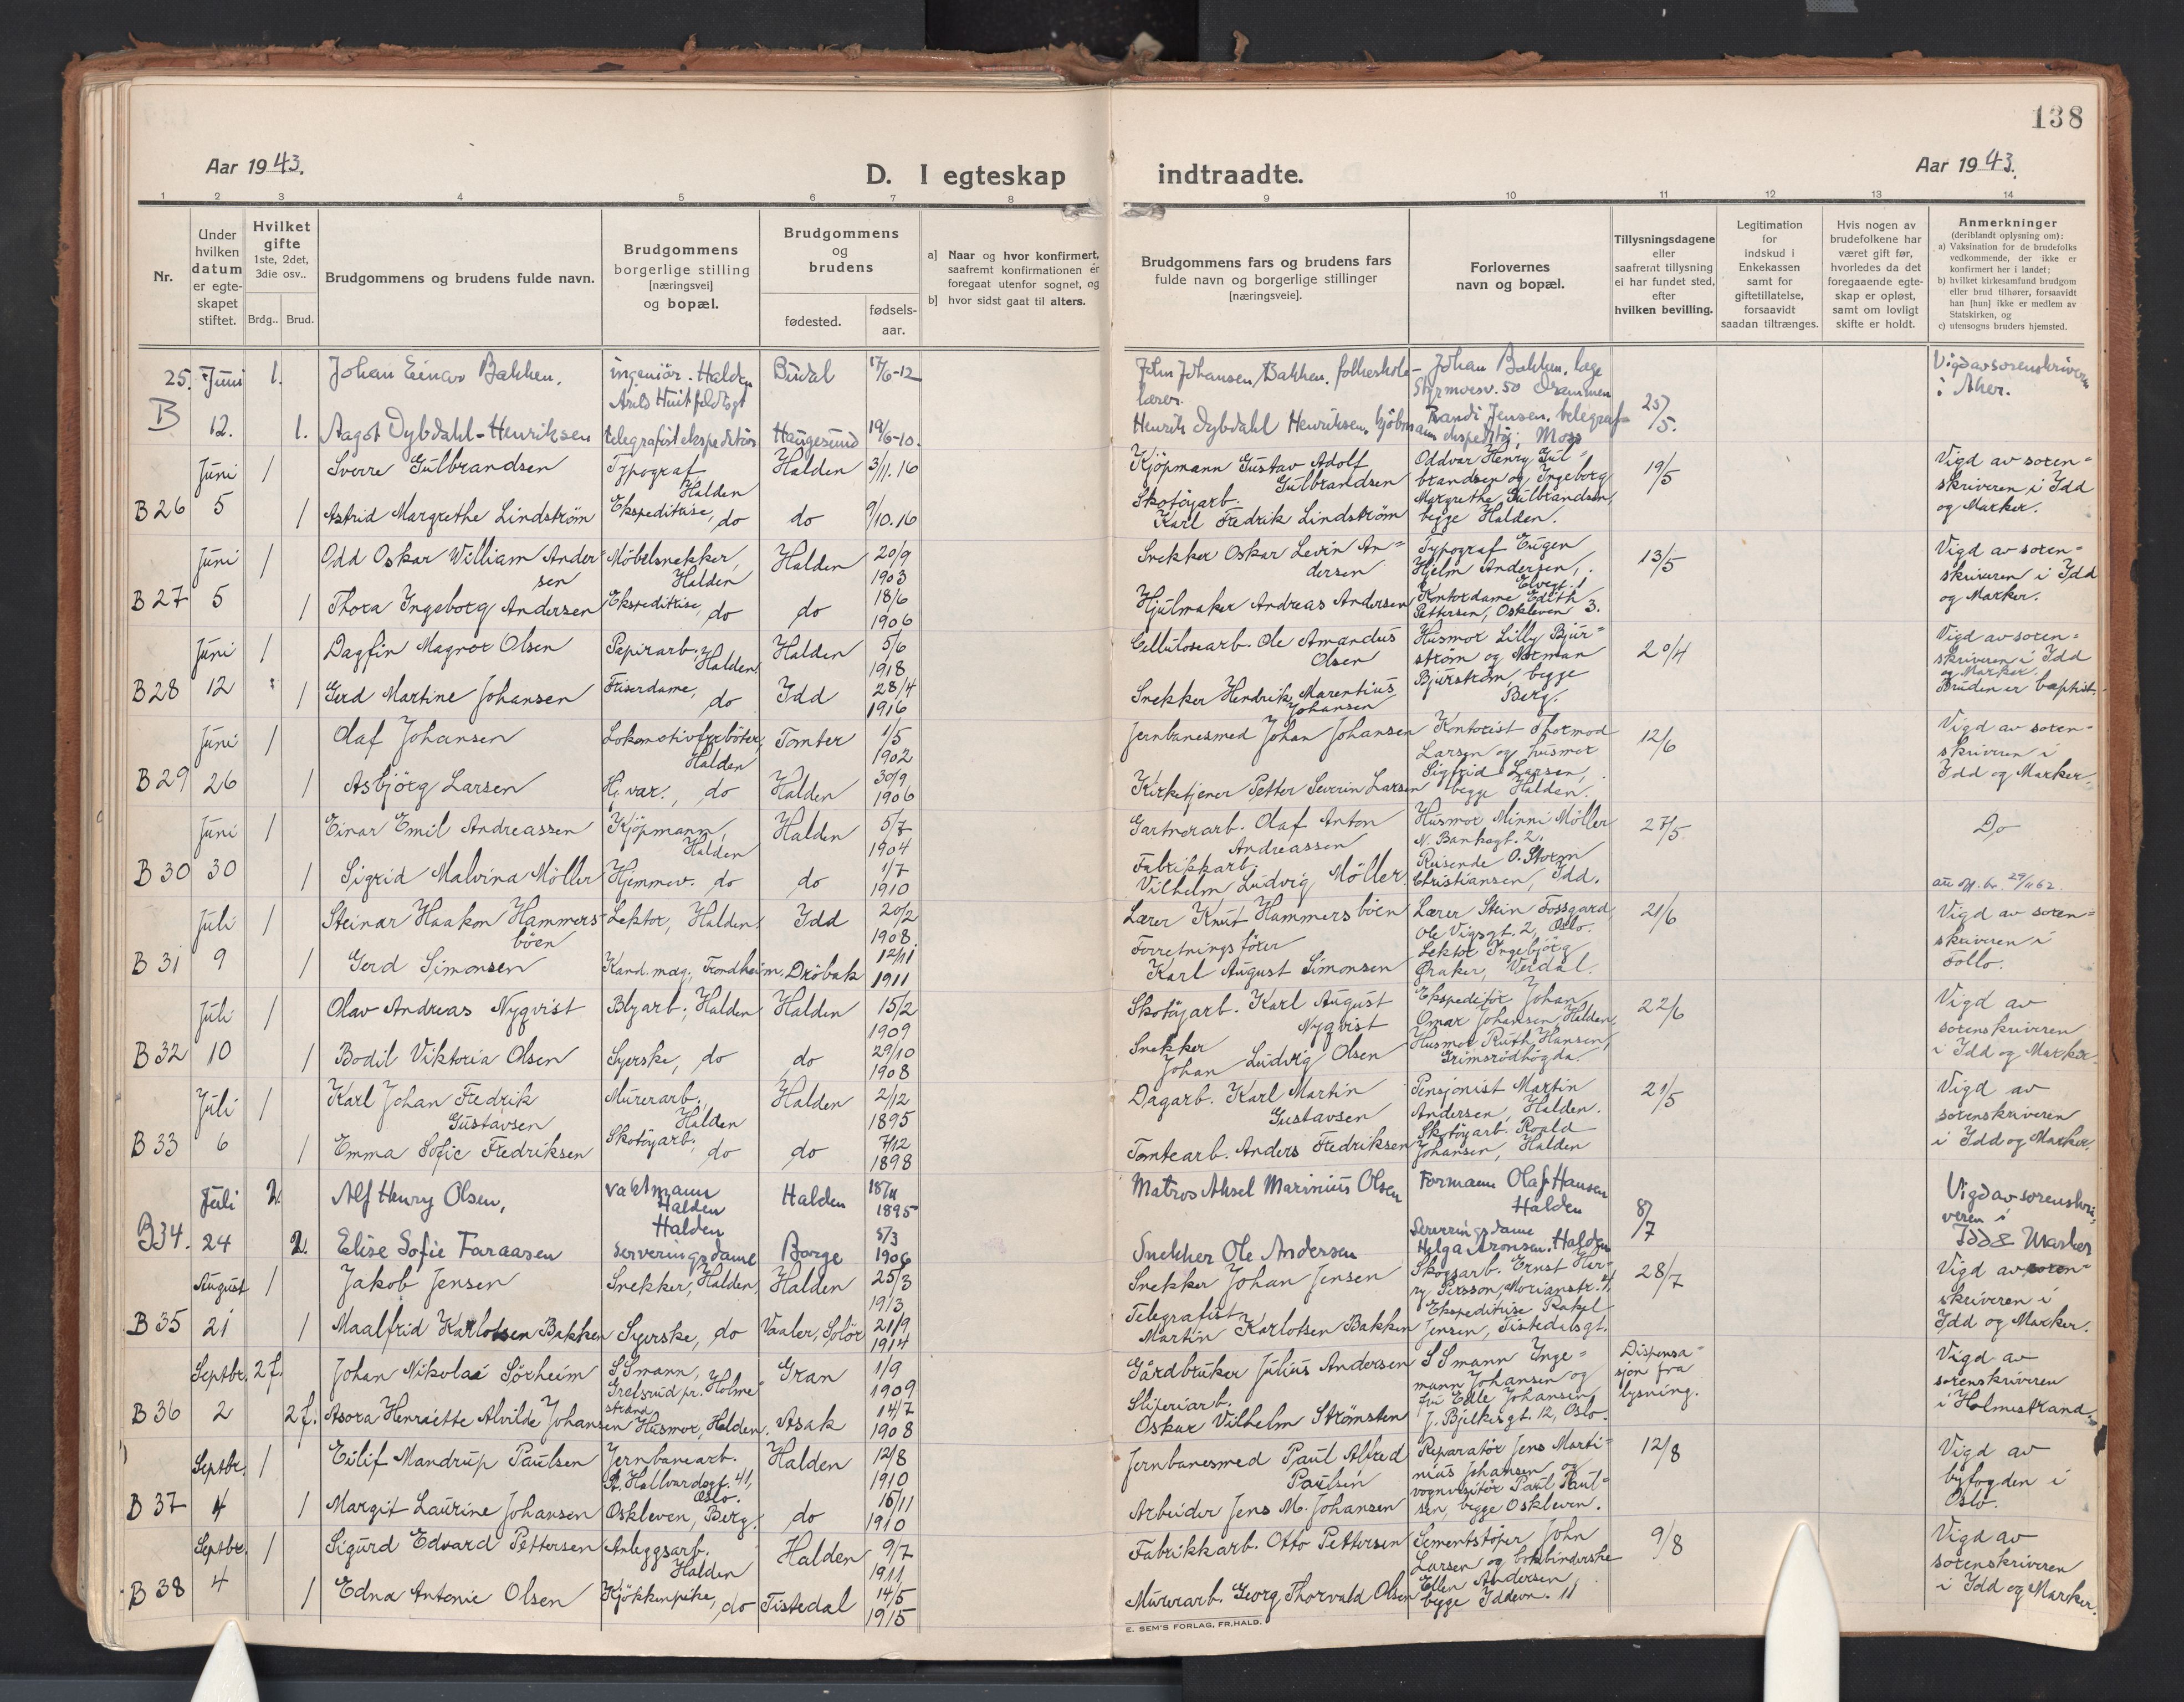 138
Aar 1943.
D. I egteskap indtraadte.
Aar 1943.
1 2 3 4 5 6 7 8 9 10 11 12 13 14
Nr.
Under hvilken datum er egteskapet stiftet.
Hvilket gifte
1ste, 2det, 3die osv..
Brdg.. Brud.
Brudgommens og brudens fulde navn.
Brudgommens borgerlige stilling [næringsvei] og bopæl.
Brudgommens og brudens
fødested. fødselsaar.
a] Naar og hvor konfirmert, saafremt konfirmationen er foregaat utenfor sognet, og
b] hvor sidst gaat til alters.
Brudgommens fars og brudens fars fulde navn og borgerlige stillinger [næringsveie].
Forlovernes navn og bopæl.
Tillysningsdagene eller saafremt tillysning ei har fundet sted, efter hvilken bevilling.
Legitimation for indskud i Enkekassen samt for giftetillatelse, forsaavidt saadan tiltrænges.
Hvis nogen av brudefolkene har været gift før, hvorledes da det foregaaende egteskap er opløst, samt om lovligt skifte er holdt.
Anmerkninger
(deriblandt oplysning om):
a) Vaksination for de brudefolks vedkommende, der ikke er konfirmert her i landet;
b) hvilket kirkesamfund brudgom eller brud tilhører, forsaavidt han [hun] ikke er medlem av Statskirken, og
c) utensogns bruders hjemsted.
25. Juni 1. Johan Einar Bakken, ingeniör. Halden Budal 17/6-12 John Johansen Bakken, folkeskolelærer. Johan Bakken, lege Styrmoesv. 50 Drammen Vigd av sorenskriveren i Aker.
B 12. 1. Aagot Dybdahl-Henriksen telegrafistekspeditör Haugesund 19/6-10. Henrik Dybdahl Henriksen, kjöbmann Randi Jensen, telegrafekspeditör, Moss 25/5.
Juni 1 Sverre Gulbrandsen Typograf Halden Halden 3/11.16 Kjöpmann Gustav Adolf Gulbrandsen Oddvar Henry Gulbrandsen og Ingeborg 19/5 Vigd av sorenskriveren i Idd
B 26 5 1 Astrid Margrethe Lindström Ekspeditrise, do do 9/10.16 Skotöyarb. Karl Fredrik Lindström Margrethe Gulbrandsen, begge Halden. og Marker.
Juni 1 Odd Oskar William Andersen Möbelsnekker, Halden Halden 20/9 1903 Snekker Oskar Levin Andersen Typograf Eugen Hjelm Andersen, Elvegt. 1 13/5 Vigd av sorenskriveren i Idd
B 27 5 1 Thora Ingeborg Andersen Ekspeditrise, do do 18/6 1906 Hjulmaker Andreas Andersen Kontordame Edith Pettersen, Oskleven 3. og Marker.
Juni 1 Dagfin Magnor Olsen Papirarb., Halden Halden 5/6 1918 Cellulosearb. Ole Amandus Olsen Husmor Lilly Bjurström og Norman 20/4 Vigd av sorenskriveren i Idd og Marker.
B 28 12 1 Gerd Martine Johansen Friserdame, do Idd 28/4 1916 Snekker Hendrik Marentius Johansen Bjurström, begge Berg. Bruden er baptist.
Juni 1 Olaf Johansen Lokomotivfyrböter, Halden Tomter 1/5 1902 Jernbanesmed Johan Johansen Kontorist Thormod Larsen og husmor 12/6 Vigd av sorenskriveren i
B 29 26 1 Asbjörg Larsen Hj. var., do Halden 30/9 1906 Kirketjener Petter Severin Larsen Sigfrid Larsen, begge Halden. Idd og Marker.
Juni 1 Einar Emil Andreassen Kjöpmann, Halden Halden 5/7 1904 Gartnerarb. Olaf Anton Andreassen Husmor Minni Möller N. Bankegt. 2. 27/5 Do
B 30 30 1 Sigrid Malvina Möller Hjemmev. do do 1/7 1910 Fabrikkarb. Vilhelm Ludvig Möller Reisende O. Storm Christiansen, Idd. 29/11 62.
Juli 1 Steinar Haakon Hammersböen Lektor, Halden Idd 20/2 1908 Lærer Knut Hammersböen Lærer Stein Fossgard, Ole Vigsgt. 2, Oslo. 21/6 Vigd av sorenskriveren i
B 31 9 1 Gerd Simonsen Kand. mag., Trondheim, Dröbak 12/11 1911 Forretningsförer Karl August Simonsen Lektor Ingebjörg Øraker, Verdal. Follo.
Juli 1 Olav Andreas Nyqvist Blyarb., Halden Halden 15/2 1909 Skotöyarb. Karl August Nyqvist Ekspeditör Johan Omar Johansen, Halden, 22/6 Vigd av sorenskriveren
B 32 10 1 Bodil Viktoria Olsen Syerske, do do 29/10 1908 Snekker Johan Ludvig Olsen Husmor Ruth Hansen, Grimsrödhögda. i Idd og Marker.
Juli 1 Karl Johan Fredrik Gustavsen Murerarb., Halden Halden 2/12 1895 Dagarb. Karl Martin Gustavsen Pensjonist Martin Andersen, Halden. 21/5 Vigd av sorenskriveren
B 33 6 1 Emma Sofie Fredriksen Skotöyarb., do do 7/12 1898 Tomtearb. Anders Fredriksen Skotöyarb. Roald Johansen, Halden i Idd og Marker.
Juli 2. Alf Henry Olsen, vaktmann Halden Halden 18/11 1895 Matros Aksel Marinius Olsen Formann Olaf Hansen Halden 8/7 Vigd av sorenskriveren i
B34. 24 2. Elise Sofie Faraasen Halden serveringsdame Borge 5/3 1906 Snekker Ole Andersen Serveringsdame Helga Aronsen. Halden Idd & Marker
August 1 Jakob Jensen Snekker, Halden, Halden 25/3 1913 Snekker Johan Jensen Skogsarb. Ernst Harry Persson, Morianstr. 4 28/7 Vigd av sorenskriveren i
B 35 21 1 Maalfrid Karlotsen Bakken Syerske, do Vaaler, Solör 21/9 1914 Telegrafist Martin Karlotsen Bakken Ekspeditrise Rakel Jensen, Tistedalsgt. Idd og Marker.
Septbr. 2 f. Johan Nikolai Sörheim SSmann, Grefsrud pr. Holmestrand Gran 1/9 1909 Gårdbruker Julius Andersen SSmann Ingemann Johansen og Dispensasjon fra lysning. Vigd av sorenskriveren
B 36 2 2 f. Asora Henriette Alvilde Johansen Husmor, Halden. Asak 14/7 1908 Sliperiarb. Oskar Vilhelm Strömsten fru Edle Johansen, J. Bjelkesgt. 12, Oslo. i Holmestrand.
Septbr. 1 Eilif Mandrup Paulsen Jernbanearb. St. Hallvardsgt. 41, Oslo. Halden 12/8 1910 Jernbanesmed Paul Alfred Paulsen Reparatör Jens Martinius Johansen og 12/8 Vigd av byfogden i
B 37 4 1 Margit Laurine Johansen Oskleven, Berg. do 16/11 1910 Arbeider Jens M. Johansen vognvisitör Paul Paulsen, begge Oskleven. Oslo.
Septbr. 1 Sigurd Edvard Pettersen Anleggsarb. Halden Halden 9/7 1911 Fabrikkarb. Otto Pettersen Sementstöper John Larsen og bokbinderske 9/8 Vigd av sorenskriveren
B 38 4 1 Edna Antonie Olsen Kjökkenpike, do Tistedal 14/5 1915 Murerarb. Georg Thorvald Olsen Ellen Andersen, begge Iddevn. 11 i Idd og Marker.
E. SEM'S FORLAG, FR.HALD.